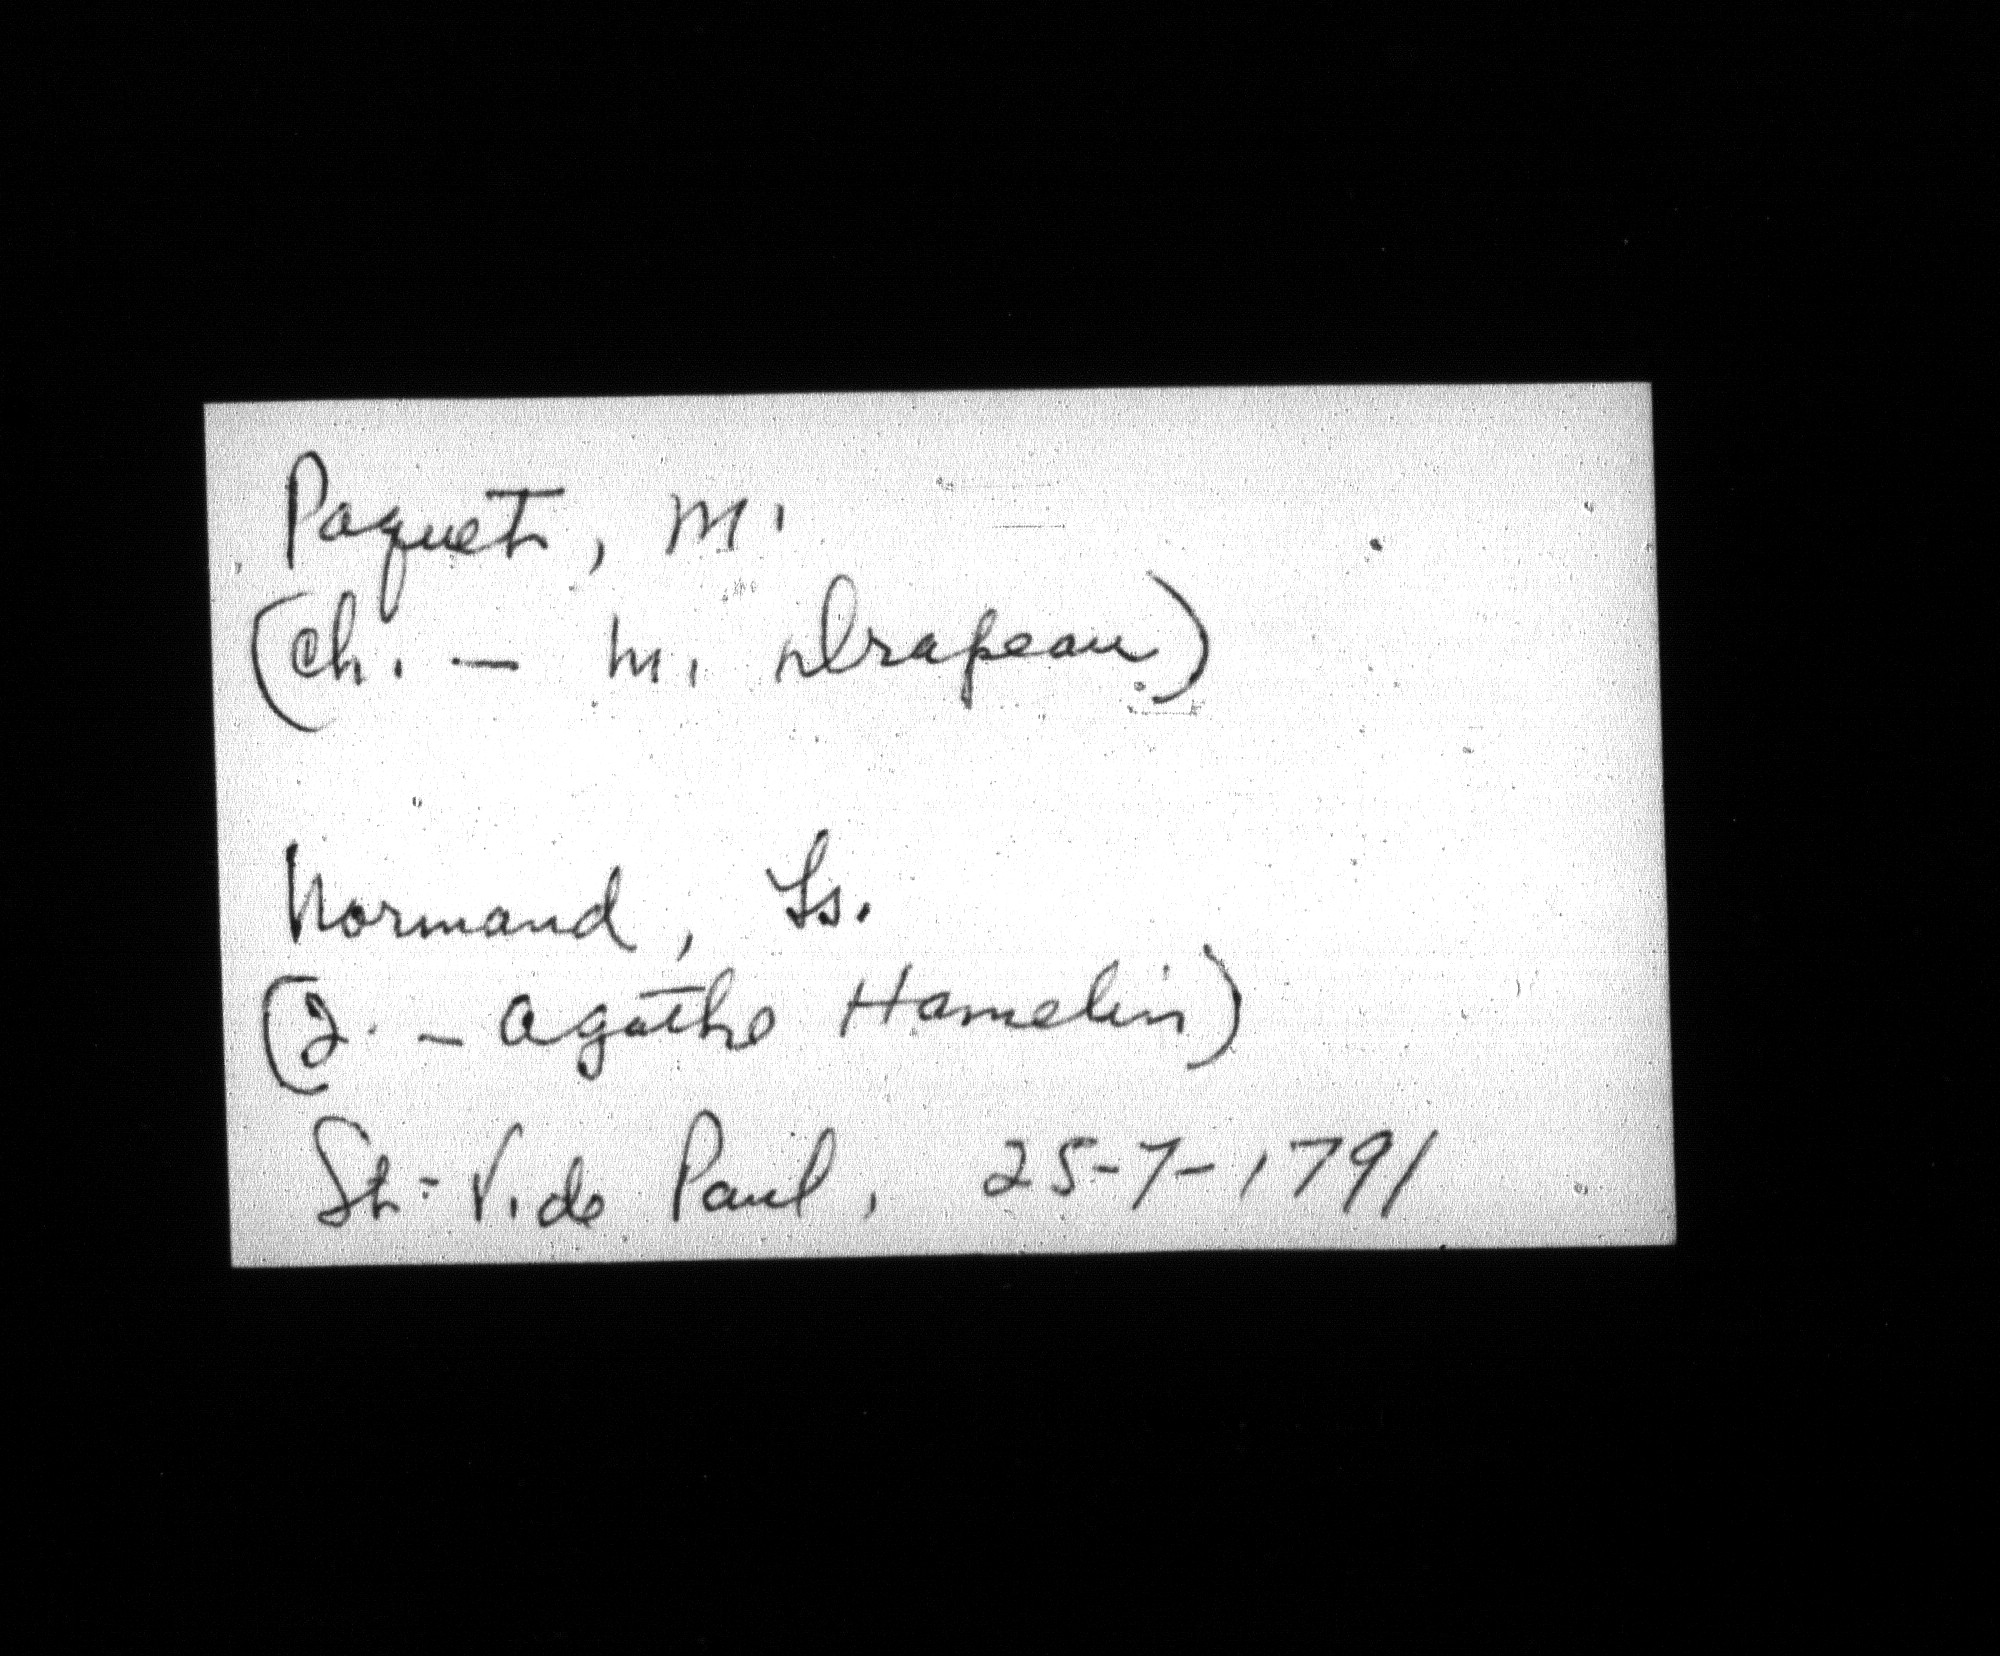 Paquet, M.
(Ch. - M. Drapeau)
Normand, Ls.
(J. - Agathe Hamelin)
St-V. de Paul, 25-7-1791